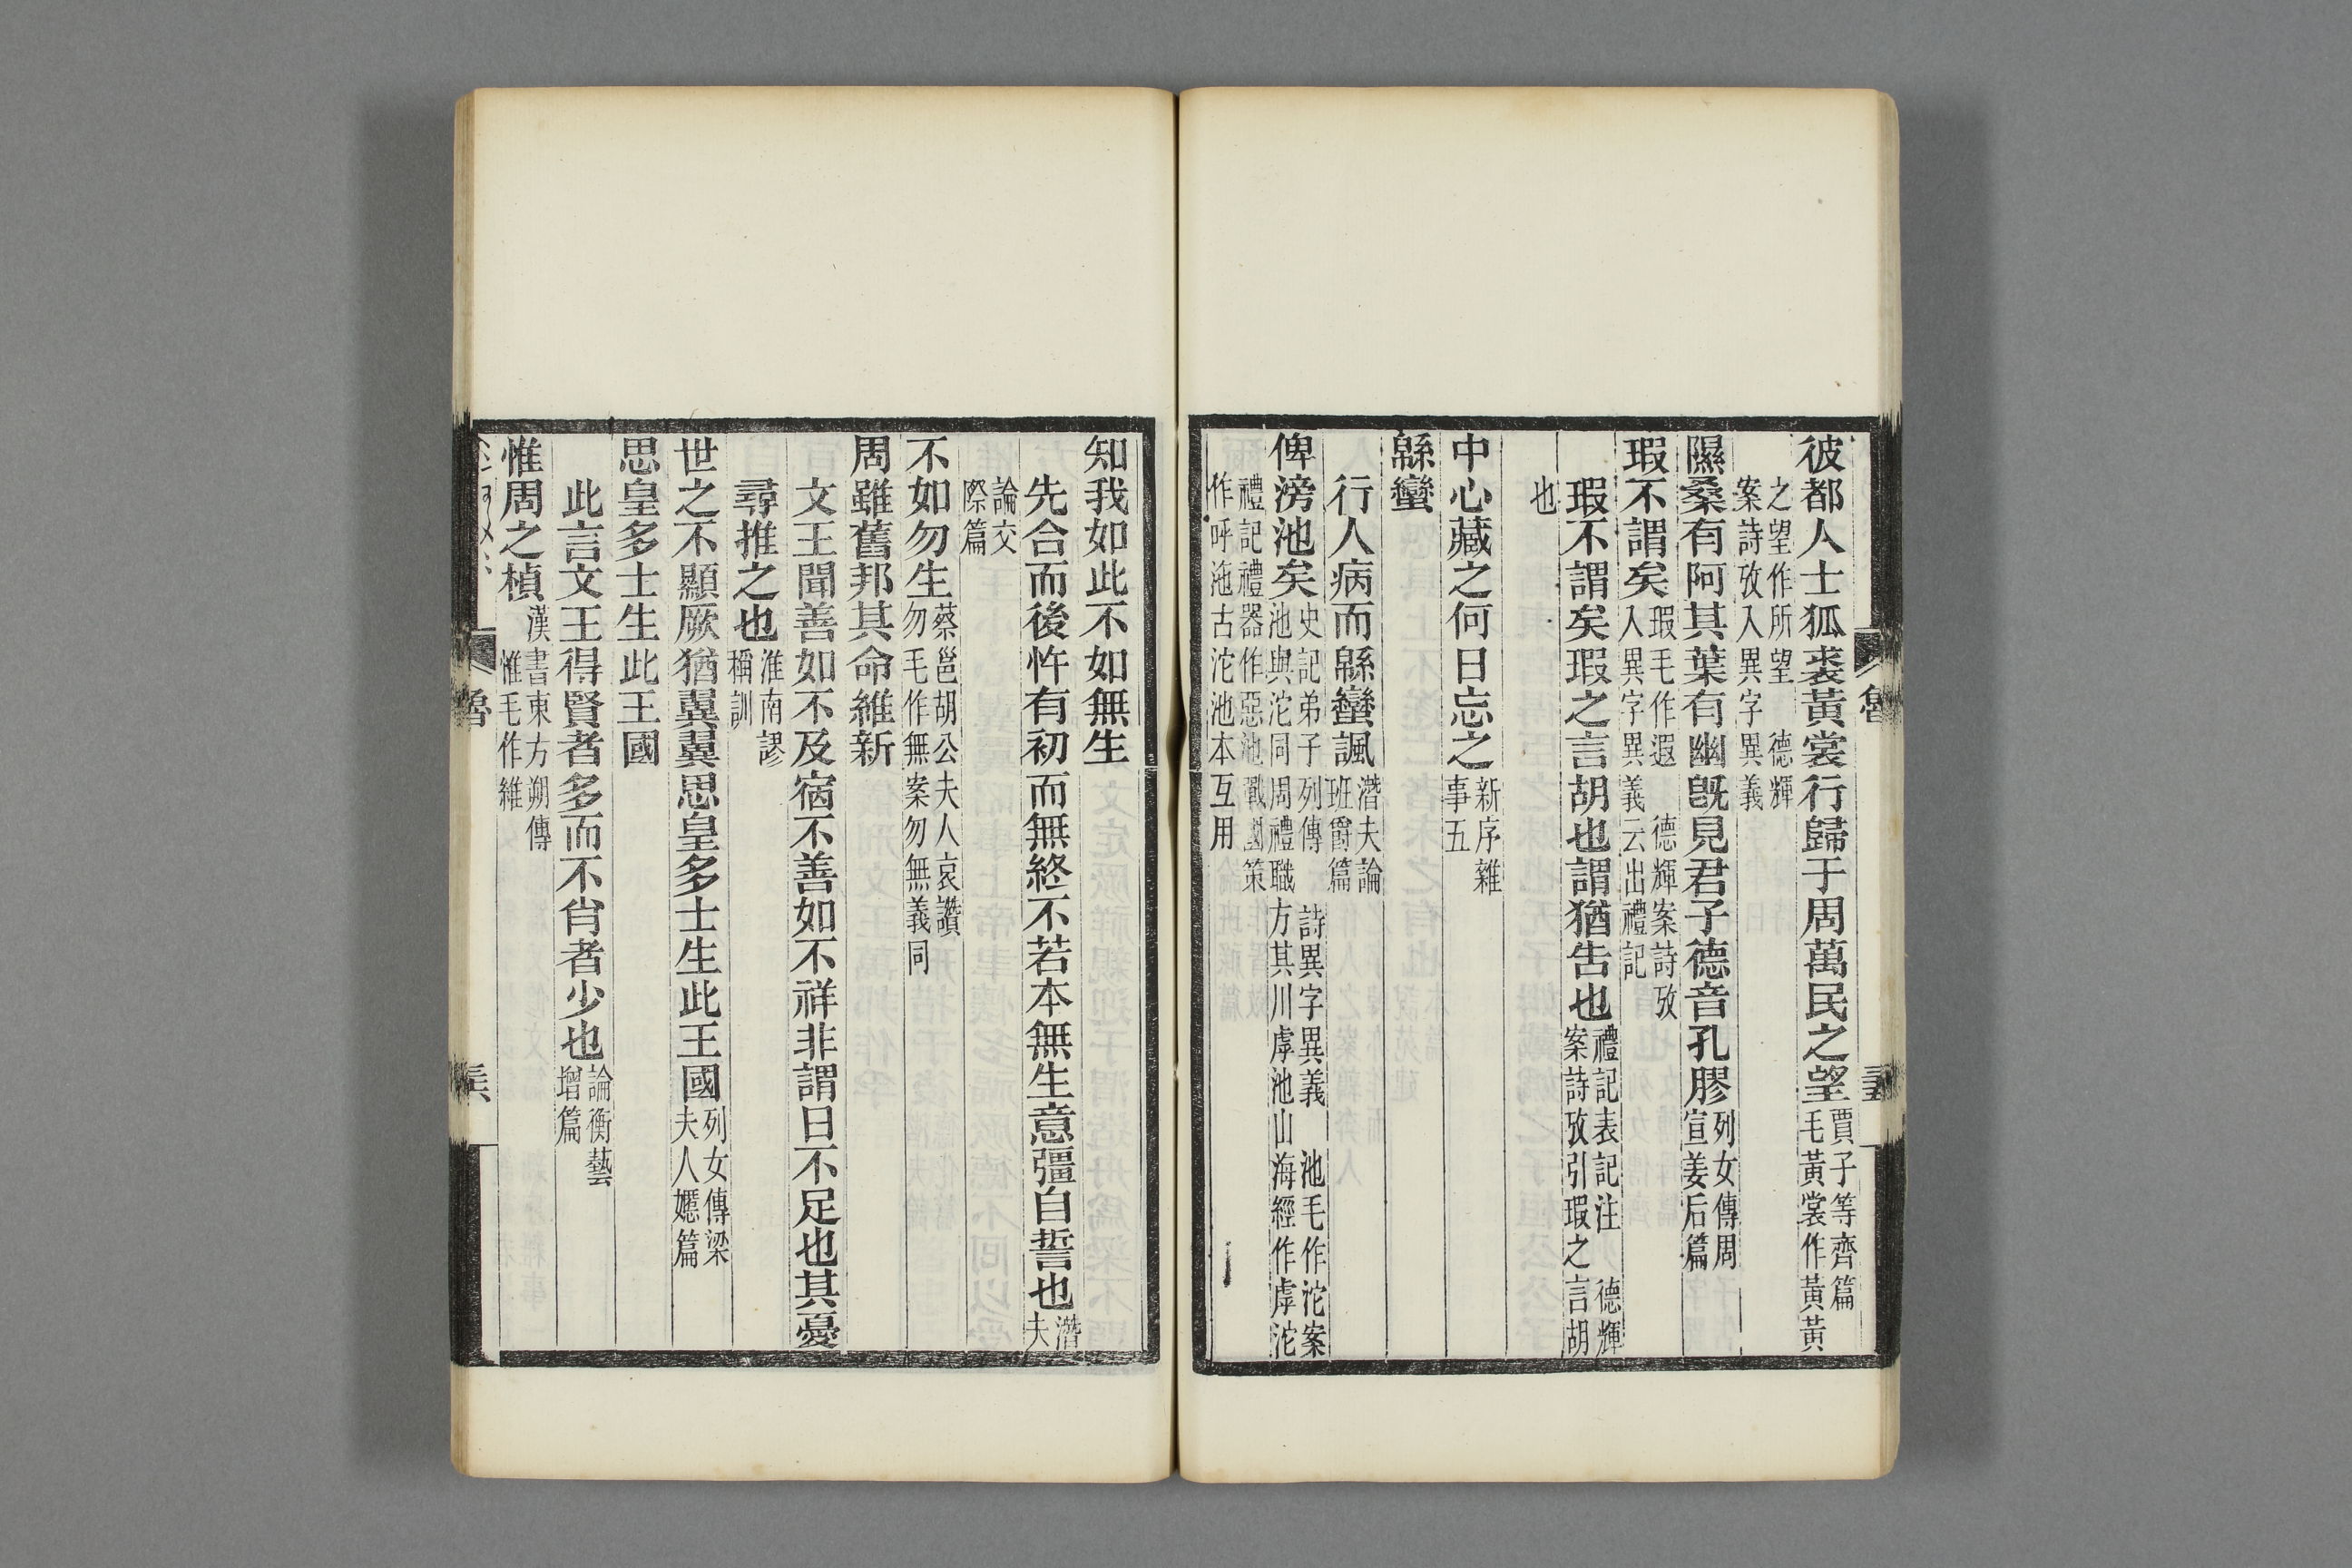 彼都人士狐裘黃裳行歸于周萬民之望賈子等齊篇毛黃裳作黃黃
之望作所望　德輝案詩攷入異字異義
隰桑有阿其葉有幽旣見君子德音孔膠列女傳周宣姜后篇
瑕不謂矣瑕毛作遐　德輝案詩攷入異字異義云出禮記
瑕不謂矣瑕之言胡也謂猶告也禮記表記注　德輝案詩攷引瑕之言胡
也
中心藏之何日忘之新序雜事五
緜蠻
行人病而緜蠻諷潛夫論班爵篇
俾滂池矣史記弟子列傳　詩異字異義　池毛作沱案池與沱同周禮職方其川虖池山海經作虖沱
禮記禮器作惡池戰國策作呼池古沱池本互用
知我如此不如無生
先合而後忤有初而無終不若本無生意彊自誓也潛夫
論交際篇
不如勿生蔡邕胡公夫人哀讚勿毛作無案勿無義同
周雖舊邦其命維新
文王聞善如不及宿不善如不祥非謂日不足也其憂
尋推之也淮南謬稱訓
世之不顯厥猶翼翼思皇多士生此王國列女傳梁夫人嫕篇
思皇多士生此王國
此言文王得賢者多而不肖者少也論衡藝增篇
惟周之楨漢書東方朔傳惟毛作維